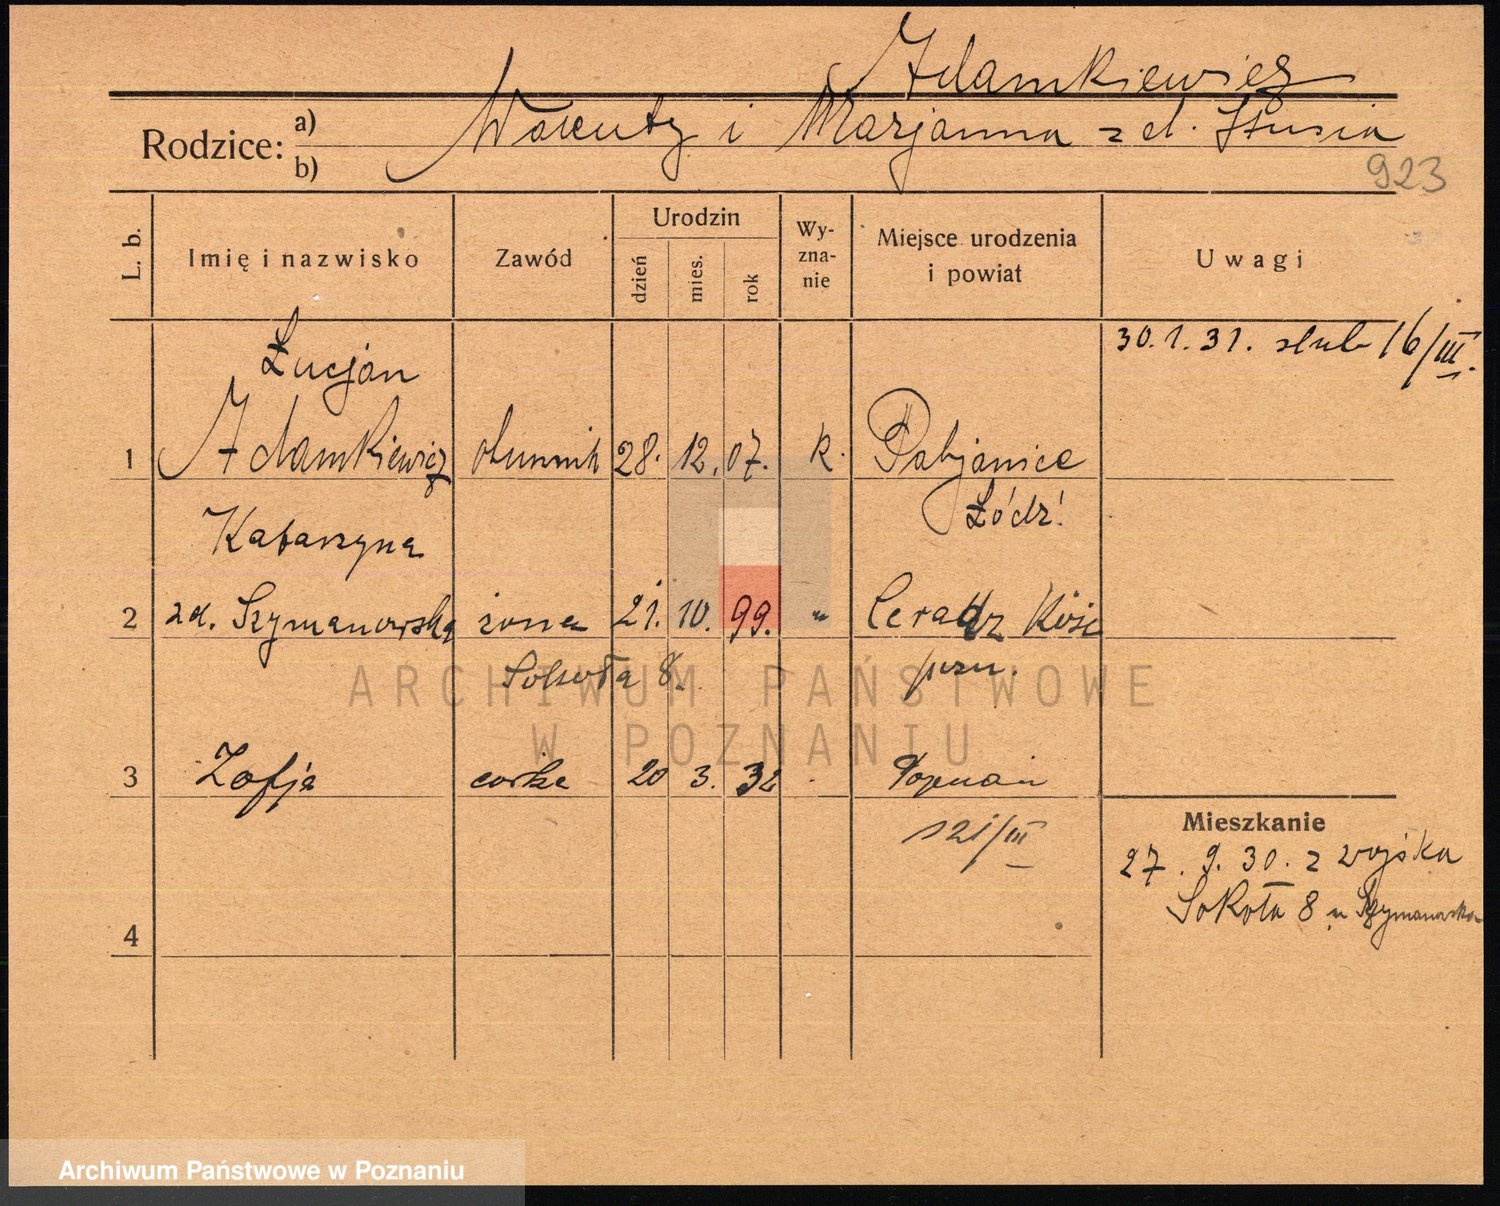 Adamkiewicz
Rodzice: a) b)
i Marjanna z d.
923
L. b.
Imię i nazwisko
Zawód
Urodzin
dzień
mies.
rok
Wy-
zna-
nie
Miejsce urodzenia
i powiat
Uwagi
30.1.31. slub 16/III.
Łucjan
1 Adamkiewicz 28. 12. 07. R. Pabjanice
Łódź
Katarzyna
2 zd. Szymanowska żona 21. 10. 99. " Ceradz Kość
pozn.
Sokoła 8.
3 Zofja córka 20 3. 32 Poznań
s 21/III
Mieszkanie
27. 9. 30. z wojska
Sokoła 8 u Szymanowska
4
ARCHIWUM PAŃSTWOWE
W POZNANIU
Archiwum Państwowe w Poznaniu